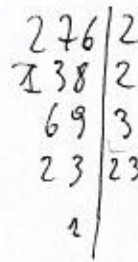 276|2
138|2
69|3
23|23
1|